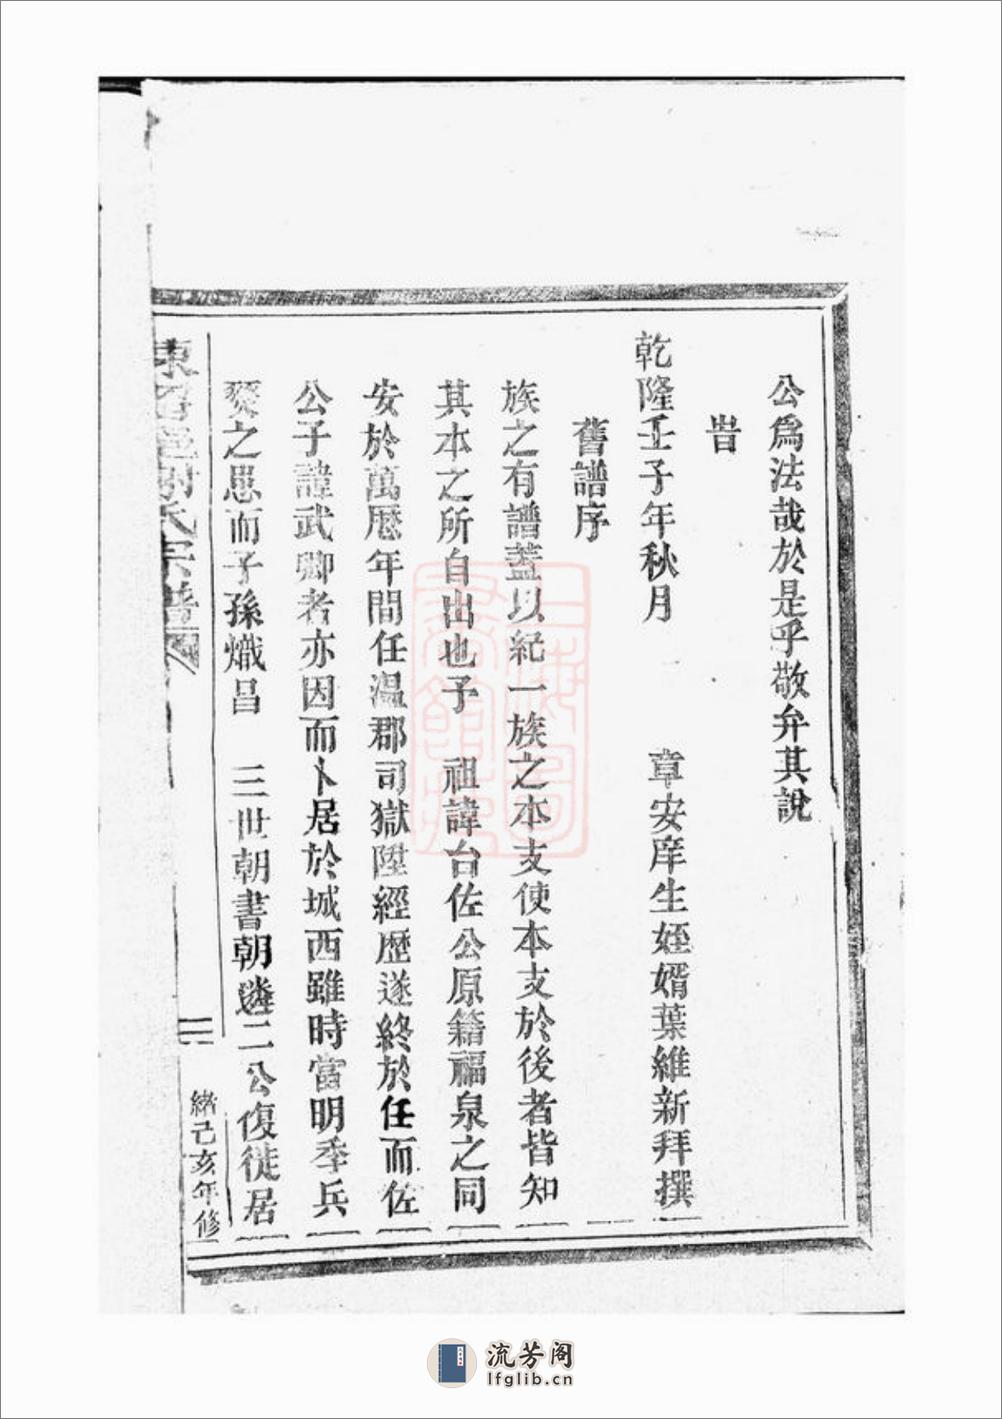 公爲法哉於是乎敬弁其說
旹
乾隆壬子年秋月　章安庠生姪婿葉維新拜撰
舊譜序
族之有譜葢以紀一族之本支使本支於後者皆知
其本之所自出也予　祖諱台佐公原籍福泉之同
安於萬厯年間任温郡司獄陞經歷遂終於任而佐
公子諱武卿者亦因而卜居於城西雖時當明季兵
燹之思而子孫熾昌　三世朝書朝遴二公復徙居
氏宗譜
緒己亥年修
上海圖書館藏
流芳阁
lfglib.cn